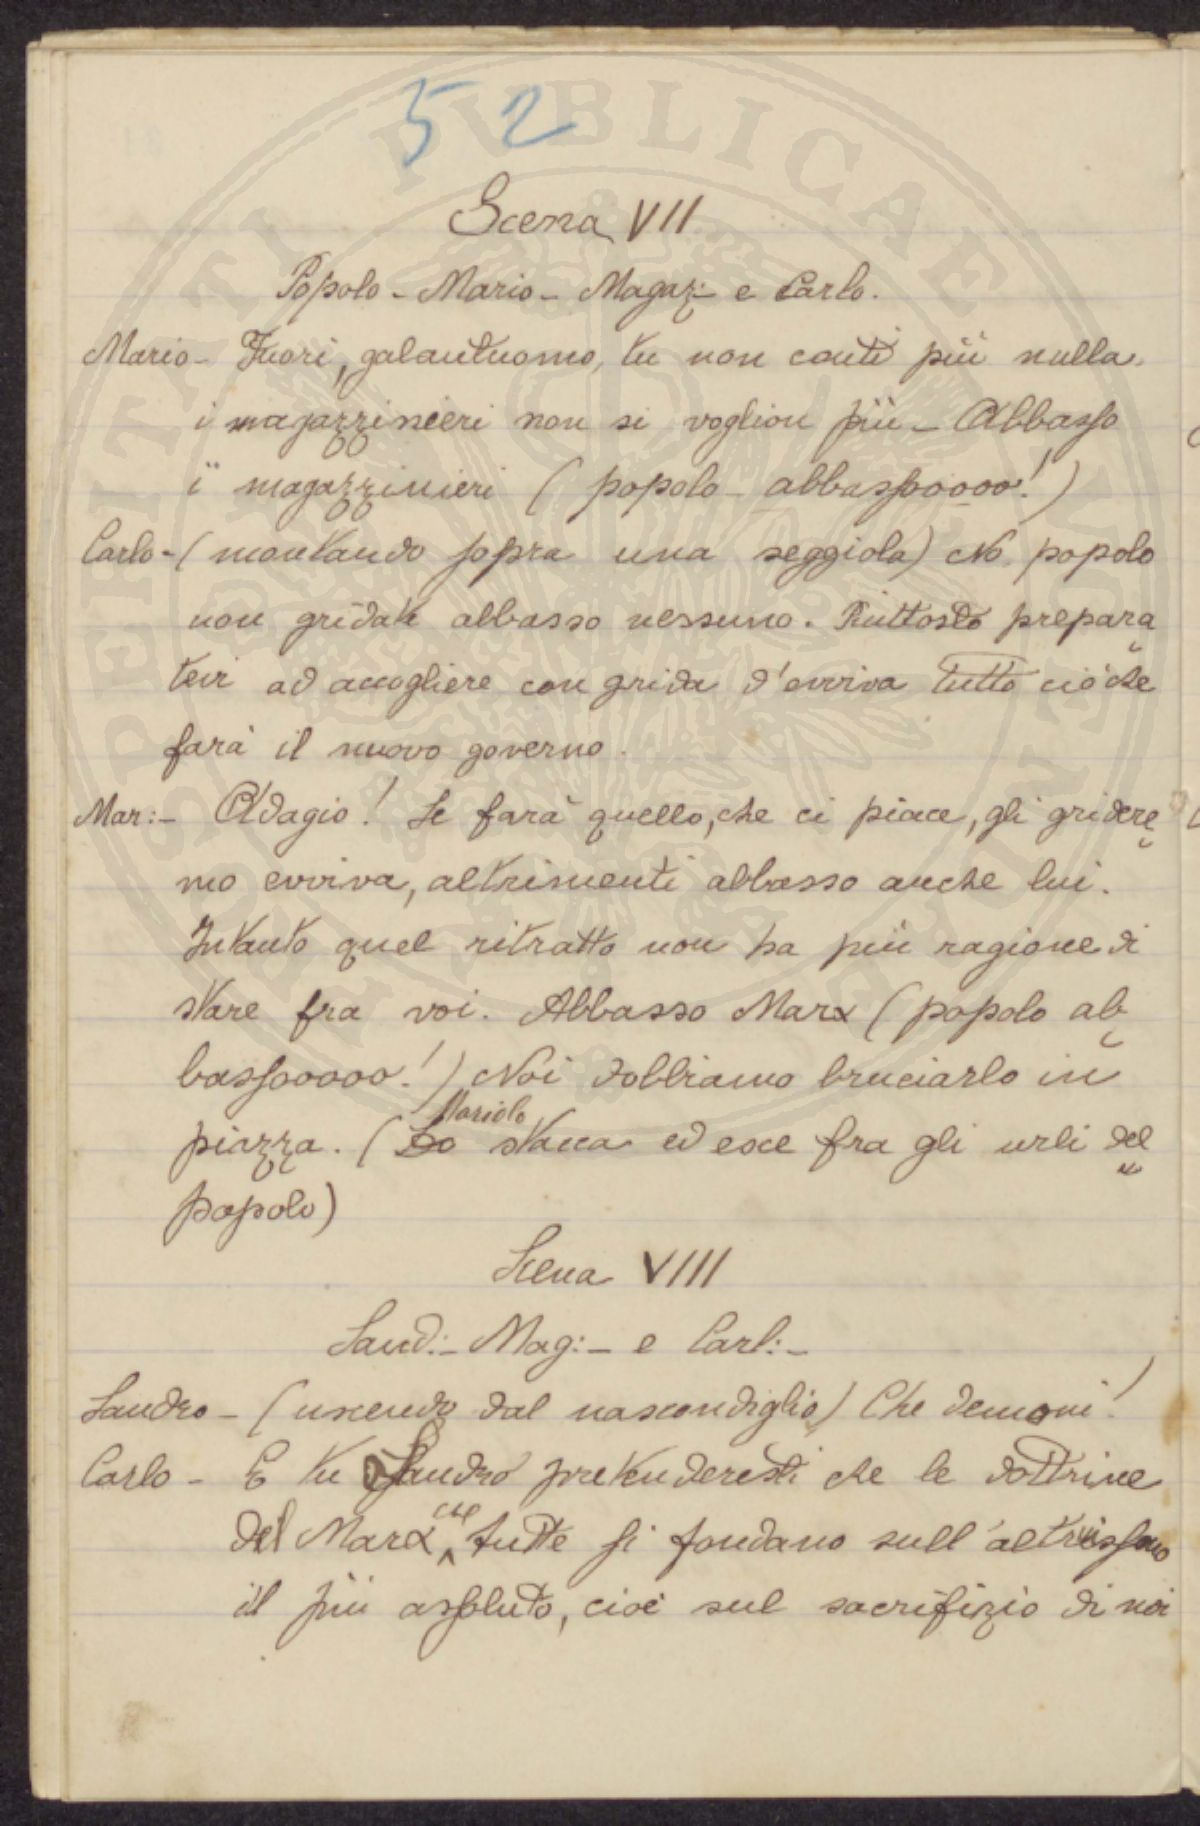 52
Scena VII
Popolo - Mario - Magaz:- e Carlo.
Mario - Fuori, galantuomo, tu non conti più nulla.
i magazzinieri non si voglion più - Abbasso
i magazzinieri (popolo - abbassooooo!)
Carlo - (montando sopra una seggiola) No popolo
non gridate abbasso nessuno. Piuttosto prepara
tevi ad accogliere con grida d'evviva tutto ciò che
farà il nuovo governo.
Mar:- Adagio! Se farà quello, che ci piace, gli gridere
mo evviva, altrimenti abbasso anche lui.
Intanto quel ritratto non ha più ragione di
stare fra voi. Abbasso Marx (popolo ab
bassooooo!) Noi dobbiamo bruciarlo in
Mariolo
piazza. (Lo stacca ed esce fra gli urli del
popolo)
Scena VIII
Sand:- Mag:- e Carl:-
Sandro - (uscendo dal nascondiglio) Che demoni!
Carlo - E tu Sandro pretenderesti che le dottrine
che
del Marx, tutte si fondano sull'altruissmo
il più assoluto, cioè sul sacrifizio di noi
PUBLICAE